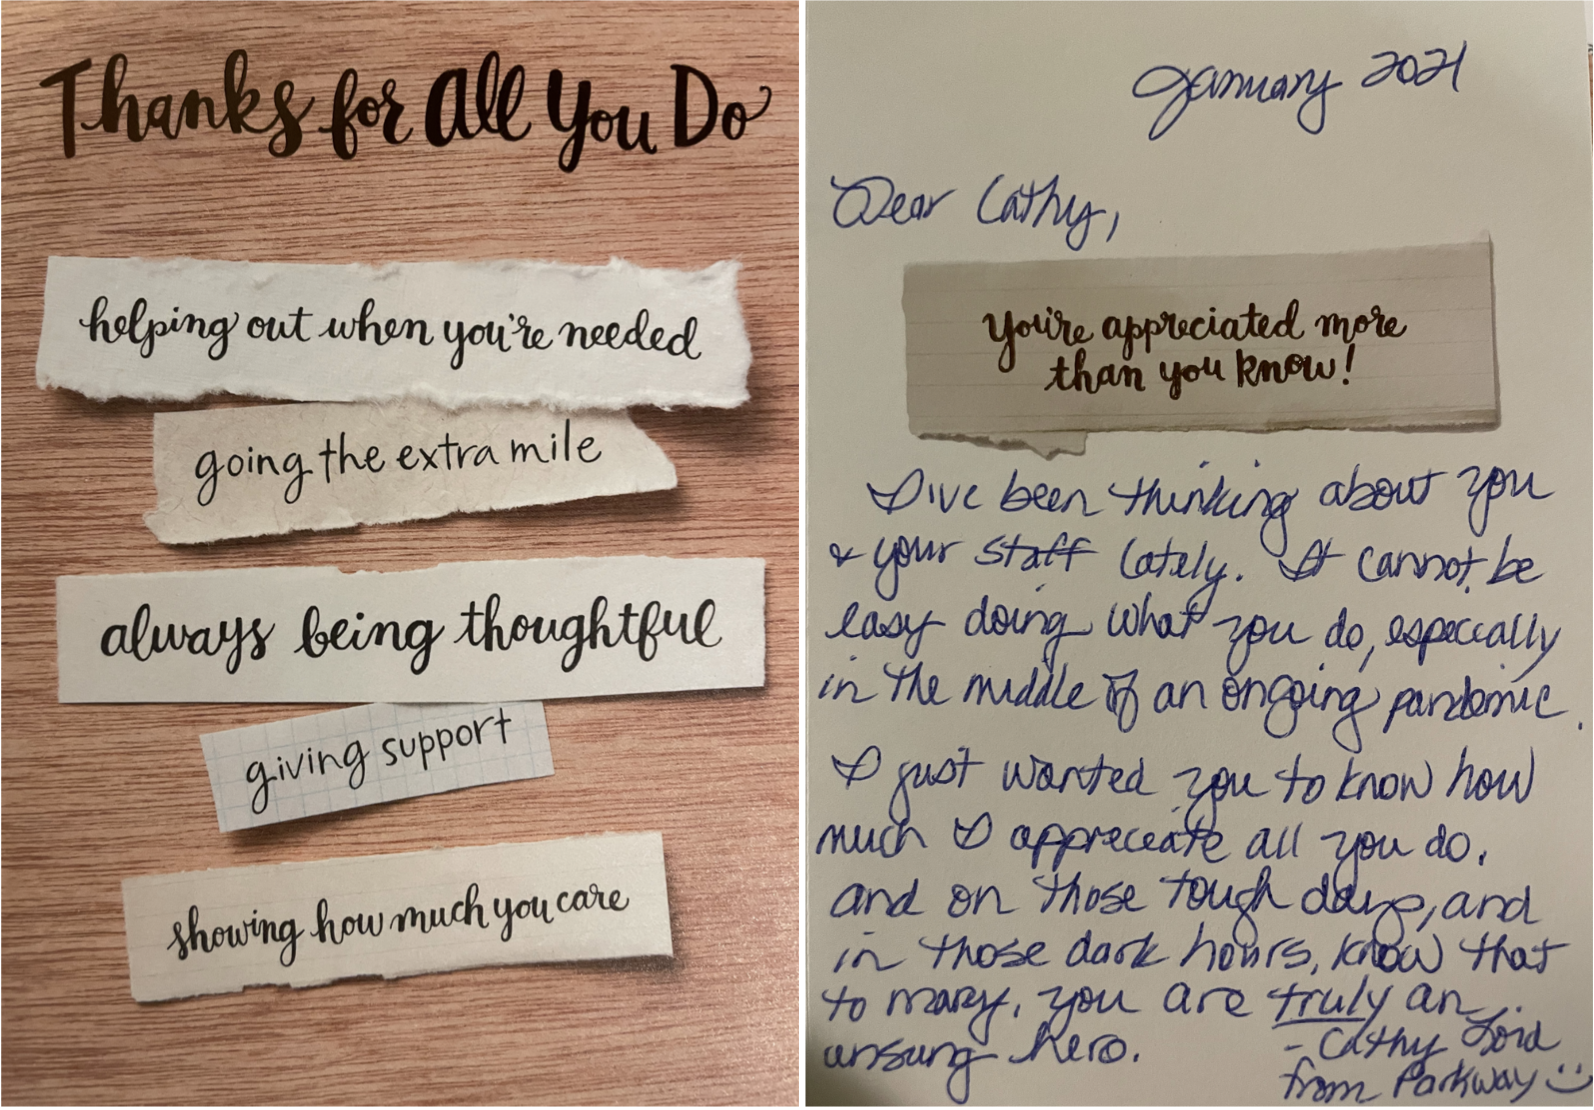 Thanks for All You Do
helping out when you're needed
going the extra mile
always being thoughtful
giving support
showing how much you care
January 2021
Dear Cathy,
You're appreciated more
than you know!
I've been thinking about you
& your staff lately. It cannot be
easy doing what you do, especially
in the middle of an ongoing pandemic.
I just wanted you to know how
much I appreciate all you do.
and on those tough days, and
in those dark hours, know that
to many, you are truly an
unsung hero.
- Cathy
from Parkway :)